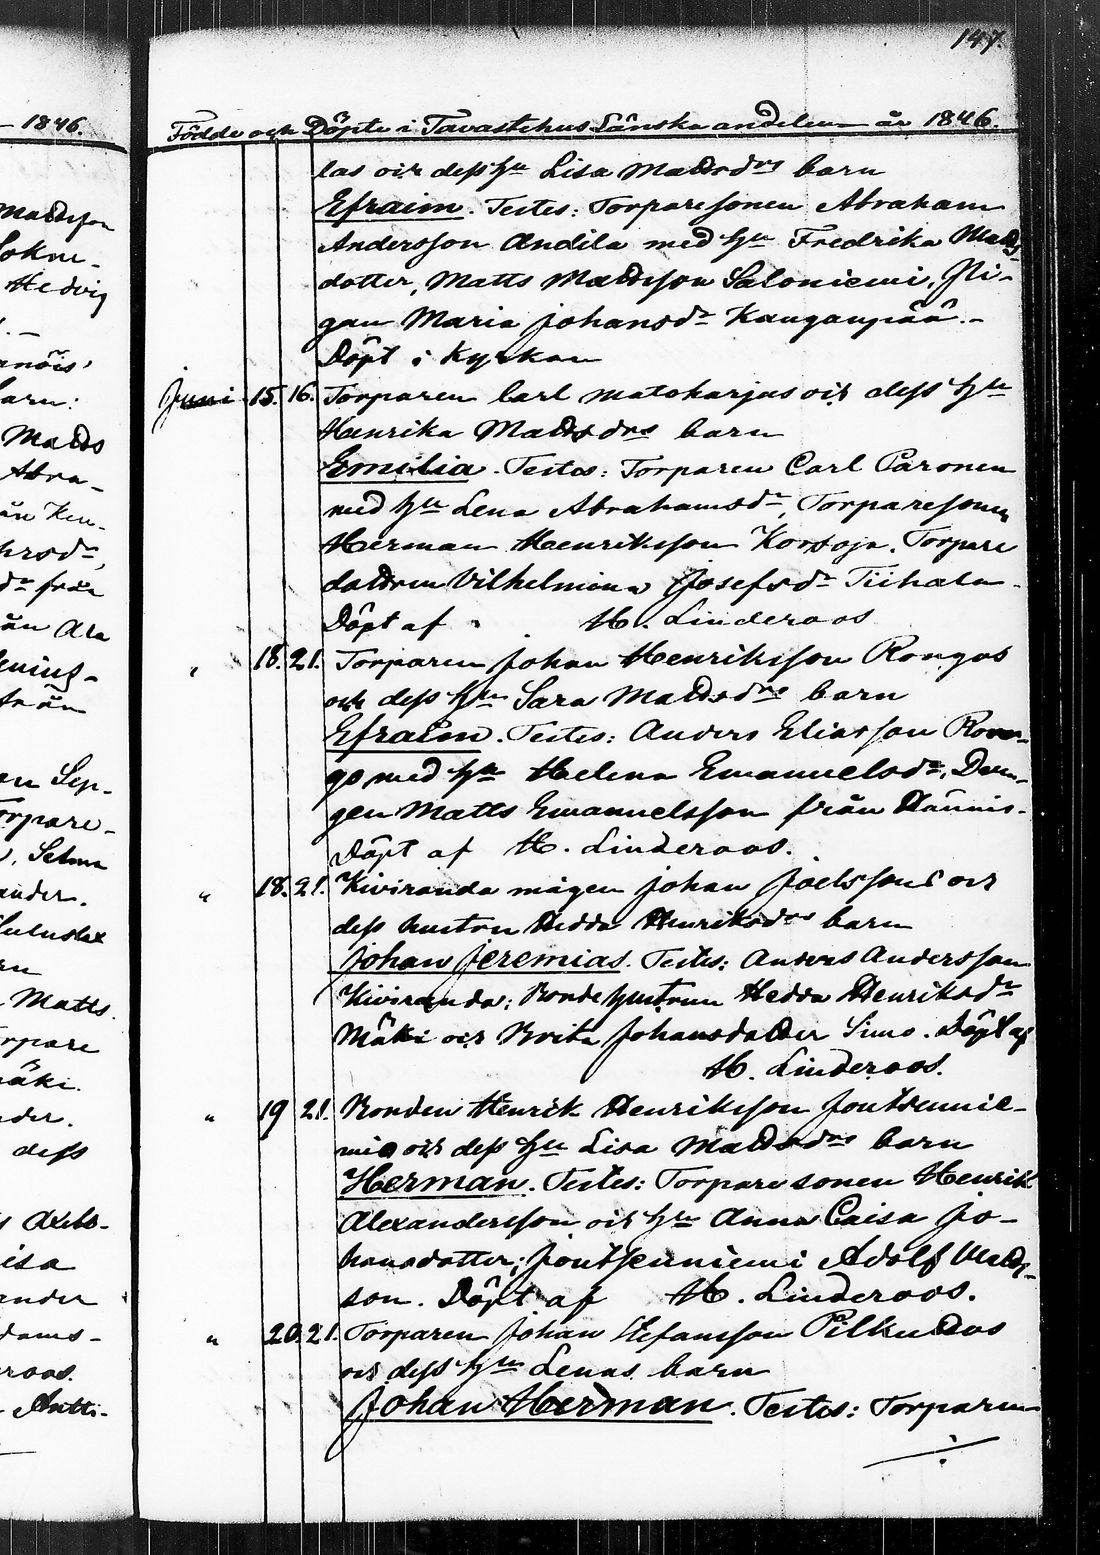 147.
Födde och Döpte i Tavastehus Länska andelen år 1846.
las och dess hu Lisa Mattsdrs barn
Efraim. Testes: Torparesonen Abraham
Andersson Andila med hu Fredrika Matts-
dotter, Matts Mattsson Saloniemi, Pi-
gan Maria Johansdr Kauganpää.-
Döpt i Kyrkan
Juni 15. 16. Torparen Carl Matoharjus och dess hu
Henrika Mattsdrs barn
Emilia. Testes: Torparen Carl Paronen
med hu Lena Abrahamsdr, Torparesonen
Herman Henriksson Korsoja. Torpare
dottren Vilhelmina Josefsdr Tiihala
Döpt af H. Linderoos
" 18. 21. Torparen Johan Henriksson Rongas
och dess hu Sara Mattsdrs barn
Efraim. Testes: Anders Eliasson Ron-
go med hu Helena Emanuelsdr, Drän-
gen Matts Emanuelsson från Hännis.
Döpt af H. Linderoos.
" 18. 21. Kiviranda mågen Johan Joelssons och
dess hustru Hedda Henriksdrs barn
Johan Jeremias. Testes: Anders Andersson
Kiviranda; Bondehustrun Hedda Henriksdr
Mäki och Brita Johansdotter Simo. Döpt af
H. Linderoos.
" 19 21. Bonden Henrik Henriksson Jouttennie-
mis och dess hu Lisa Mattsdrs barn
Herman. Testes: Torparesonen Henrik
Alexandersson och hu Anna Caisa Jo-
hansdotter; Jouttenniemi Adolf Matts-
son. Döpt af H. Linderoos.
" 20. 21. Torparen Johan Stefansson Pilkudas
och dess hu Lenas barn
Johan Herman. Testes: Torparen
- 1846.
Mattsson
Hedvig
barn:
Matts
Abra-
från
från
Sep-
Torpare-
, Selma
ander.
Matts.
Torpare
mäki.
dess
Axels-
isa
ander
dams-
roos.
Antti-